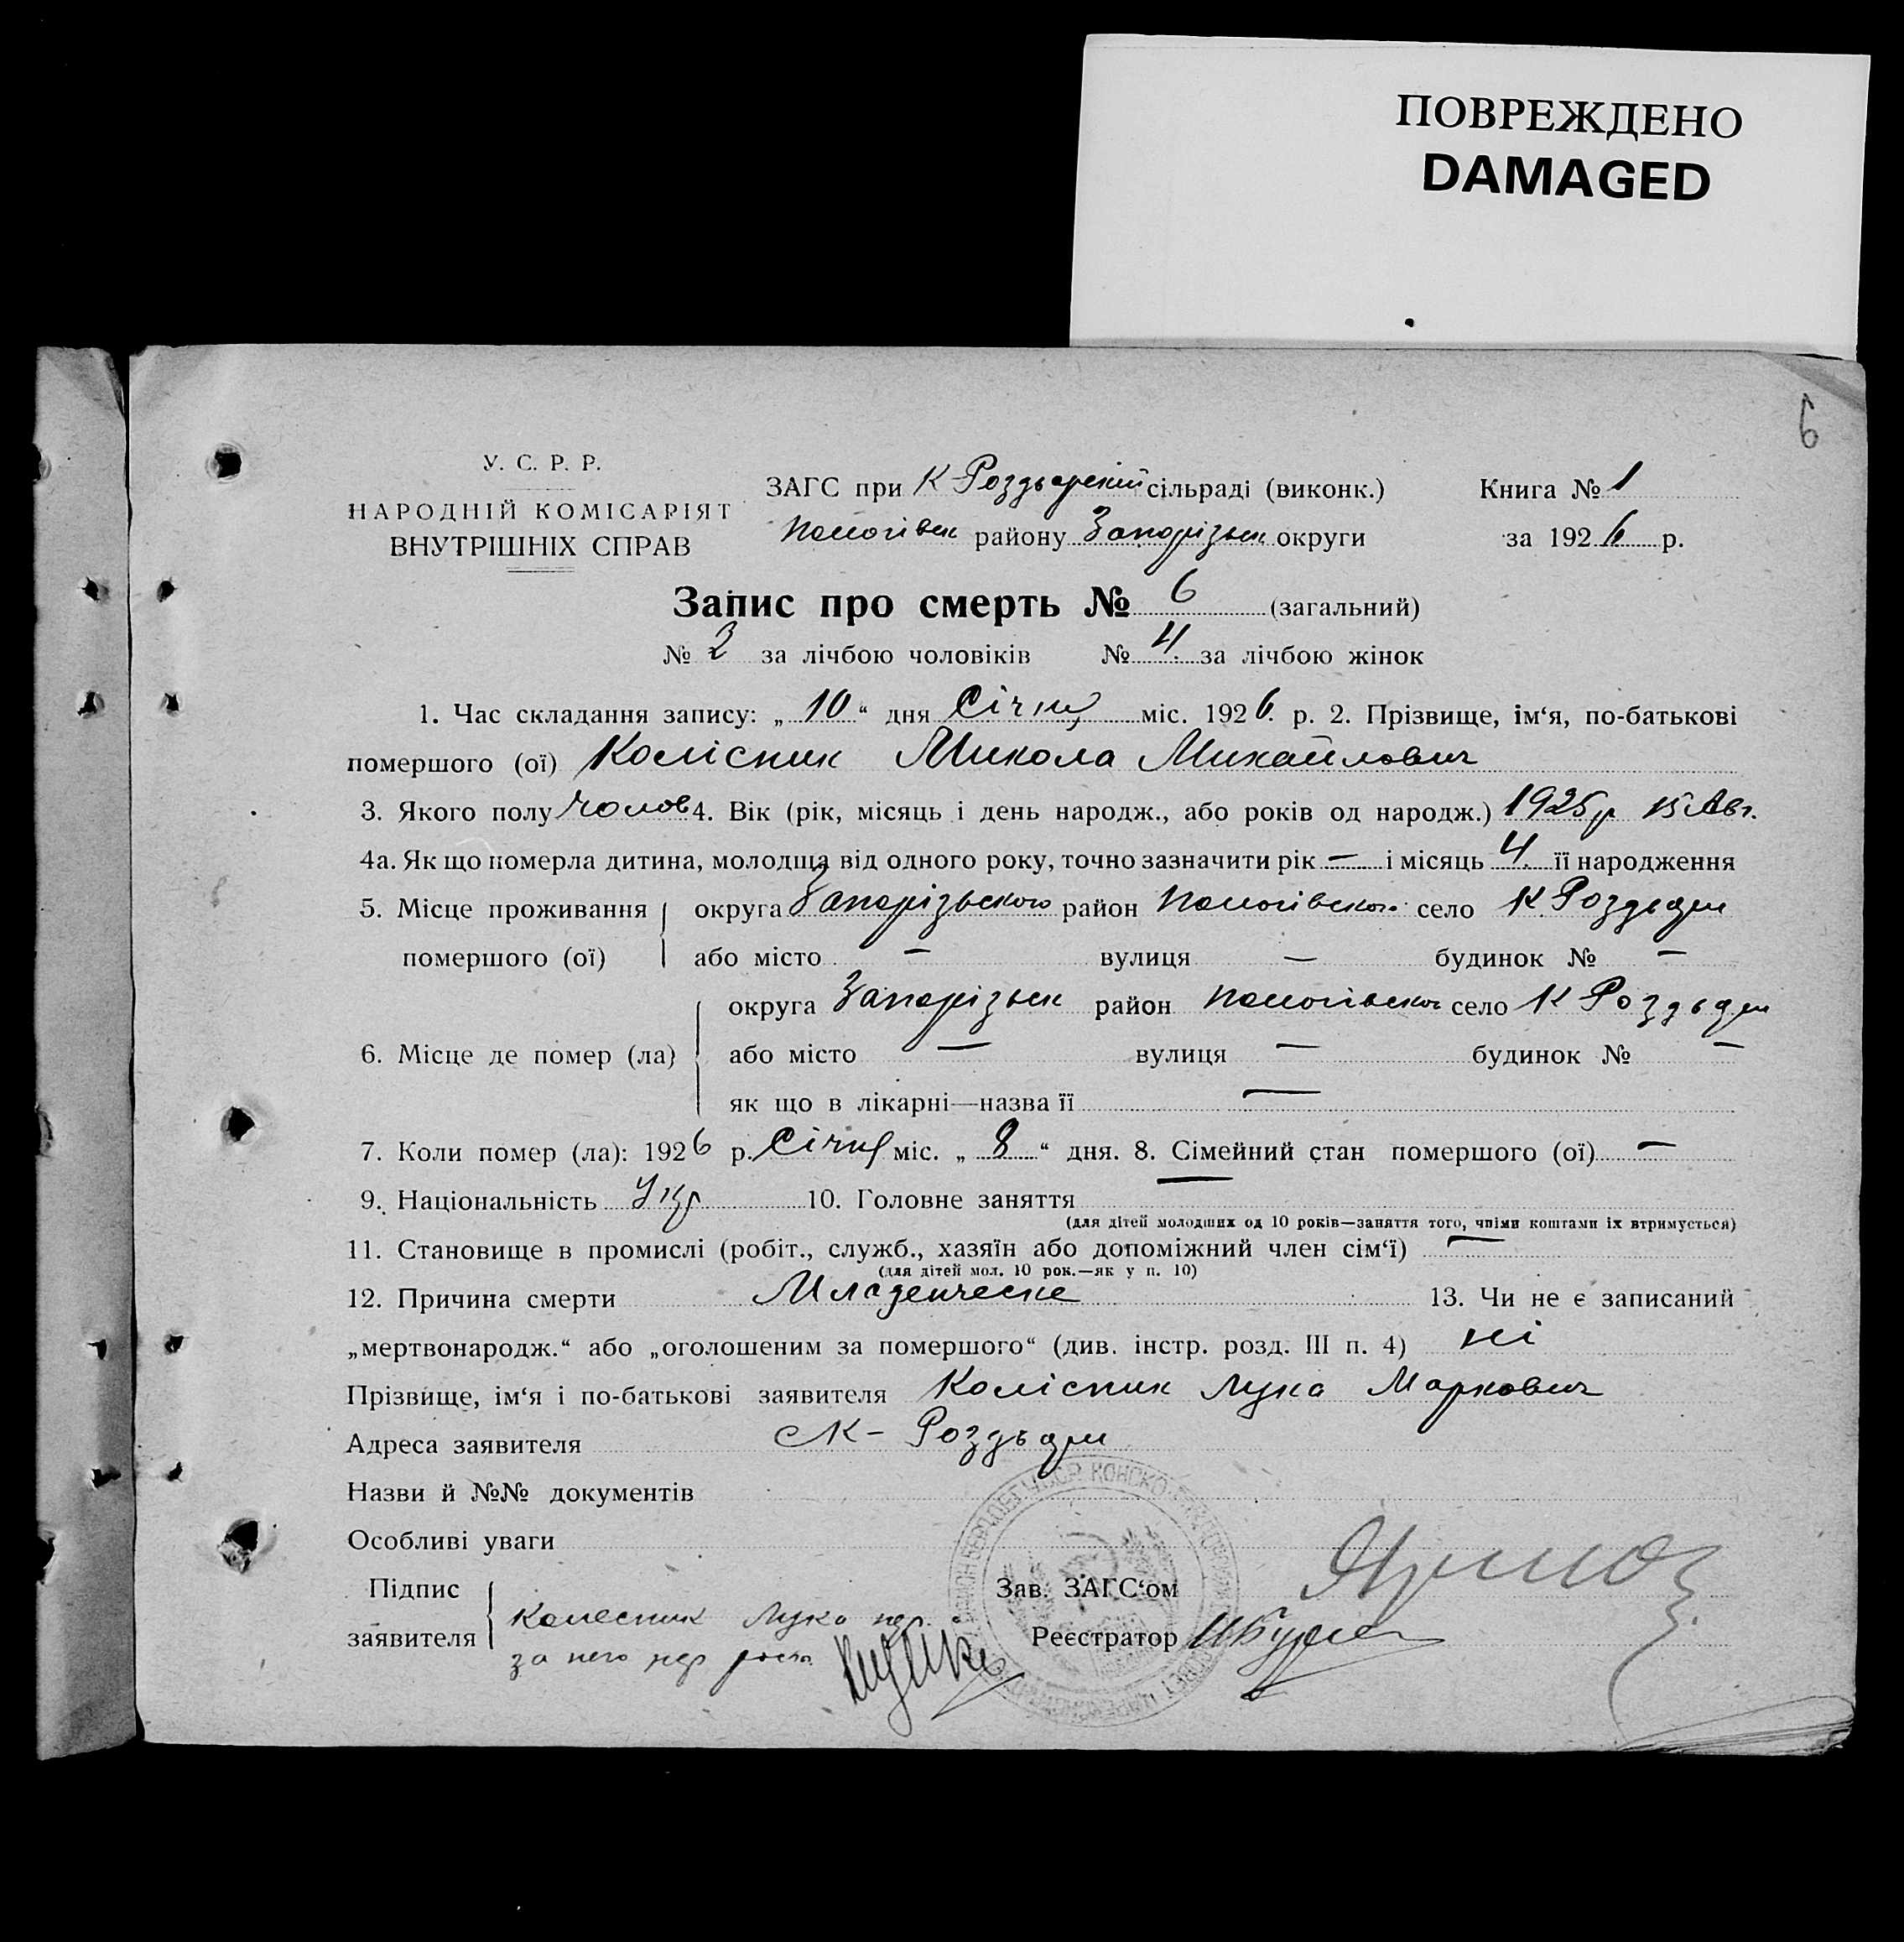 ПОВРЕЖДЕНО
DAMAGED
6
У. С. Р. Р.
НАРОДНІЙ КОМІСАРІЯТ
ВНУТРІШНІХ СПРАВ
ЗАГС при К Роздорскій сільраді (виконк.) Книга № 1
Пологівськ району Запорізьк округи за 1926 р.
Запис про смерть № 6 (загальний)
№ 2 за лічбою чоловіків № 4. за лічбою жінок
1. Час складання запису: „ 10 “ дня Січня міс. 1926. р. 2. Прізвище, ім‘я, по-батькові
помершого (ої) Колісник Микола Михайлович
3. Якого полу Чолов 4. Вік (рік, місяць і день народж., або років од народж.) 1925 р 15 Авг.
4а. Як що померла дитина, молодща від одного року, точно зазначити рік — і місяць 4. її народження
5. Місце проживання округа Запорізького район Пологівськ. село К. Роздори
помершого (ої) або місто — вулиця — будинок № —
округа Запорізьк район Пологівськ село К Роздори
6. Місце де помер (ла) або місто — вулиця — будинок № —
як що в лікарні—назва її —
7. Коли помер (ла): 1926 р. Січня міс. „ 8 “ дня. 8. Сімейний стан помершого (ої) —
9. Національність Укр 10. Головне заняття —
(для дітей молодших од 10 років—заняття того, чиїми коштами їх втримується)
11. Становище в промислі (робіт., служб., хазяїн або допоміжний член сім‘ї) —
(для дітей мол. 10 рок.—як у п. 10)
12. Причина смерти Младенческе 13. Чи не є записаний
„мертвонародж.“ або „оголошеним за помершого“ (див. інстр. розд. III п. 4) ні
Прізвище, ім‘я і по-батькові заявителя Колісник Лука Маркович
Адреса заявителя с К- Роздори
Назви й №№ документів
Особливі уваги
Підпис Зав. ЗАГС‘ом
заявителя Колесник Лука нгр. Реєстратор
за него нгр росп.